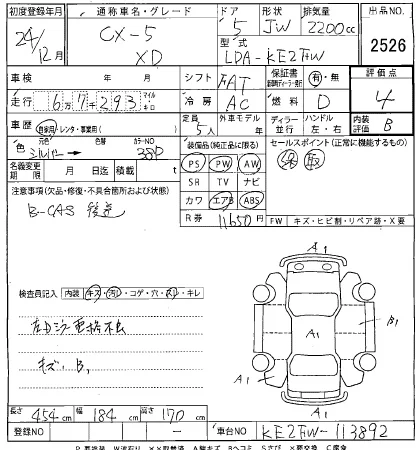 初度登録年月 通称車名・グレード ドア 形状 排気量 出品NO.
24/12月 CX-5 XD 5 JW 2200cc 2526
型式 LDA-KE2FW
車検 年 月 シフト FAT 保証書 有・無 評価点 4
走行 6万7千293 マイル キロ 冷房 AC 燃料 D
定員 5人 外車モデル 年 ディーラー 並行 ハンドル 左・右 内装評価 B
車歴 自家用・レンタ・事業用( )
色 シルバー 色替 カラーNO 38P
装備品(純正品に限る) セールスポイント(正常に機能するもの)
PS PW AW 保 取
名義変更期限 月 日迄 積載 t
SR TV ナビ
注意事項(欠品・修復・不具合箇所および状態)
カワ エアB ABS
B-CAS 後送
R券 11650円
FW キズ・ヒビ割・リペア跡・X要
検査員記入 内装 キズ・汚レ・コゲ・穴・スレ・キレ
A1
左ドアミラー電格不良
A1 B1
キズ・B1
A1 A1
長さ 454cm 幅 184cm 高さ 170cm
登録NO － 車台NO. KE2FW-113892